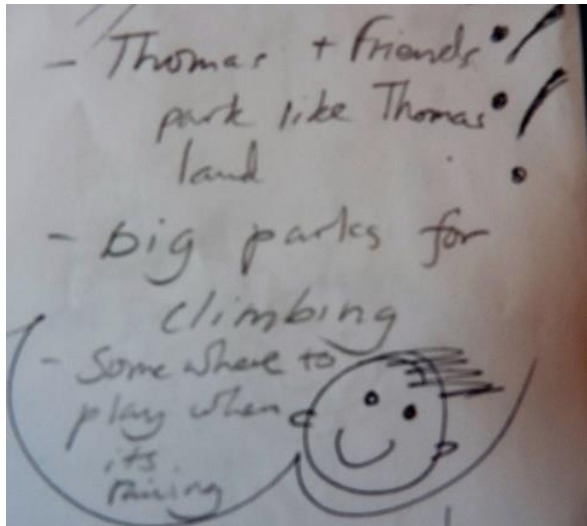 - Thomas + Friends
park like Thomas
land
- big parks for
climbing
- Somewhere to
play when
its
raining